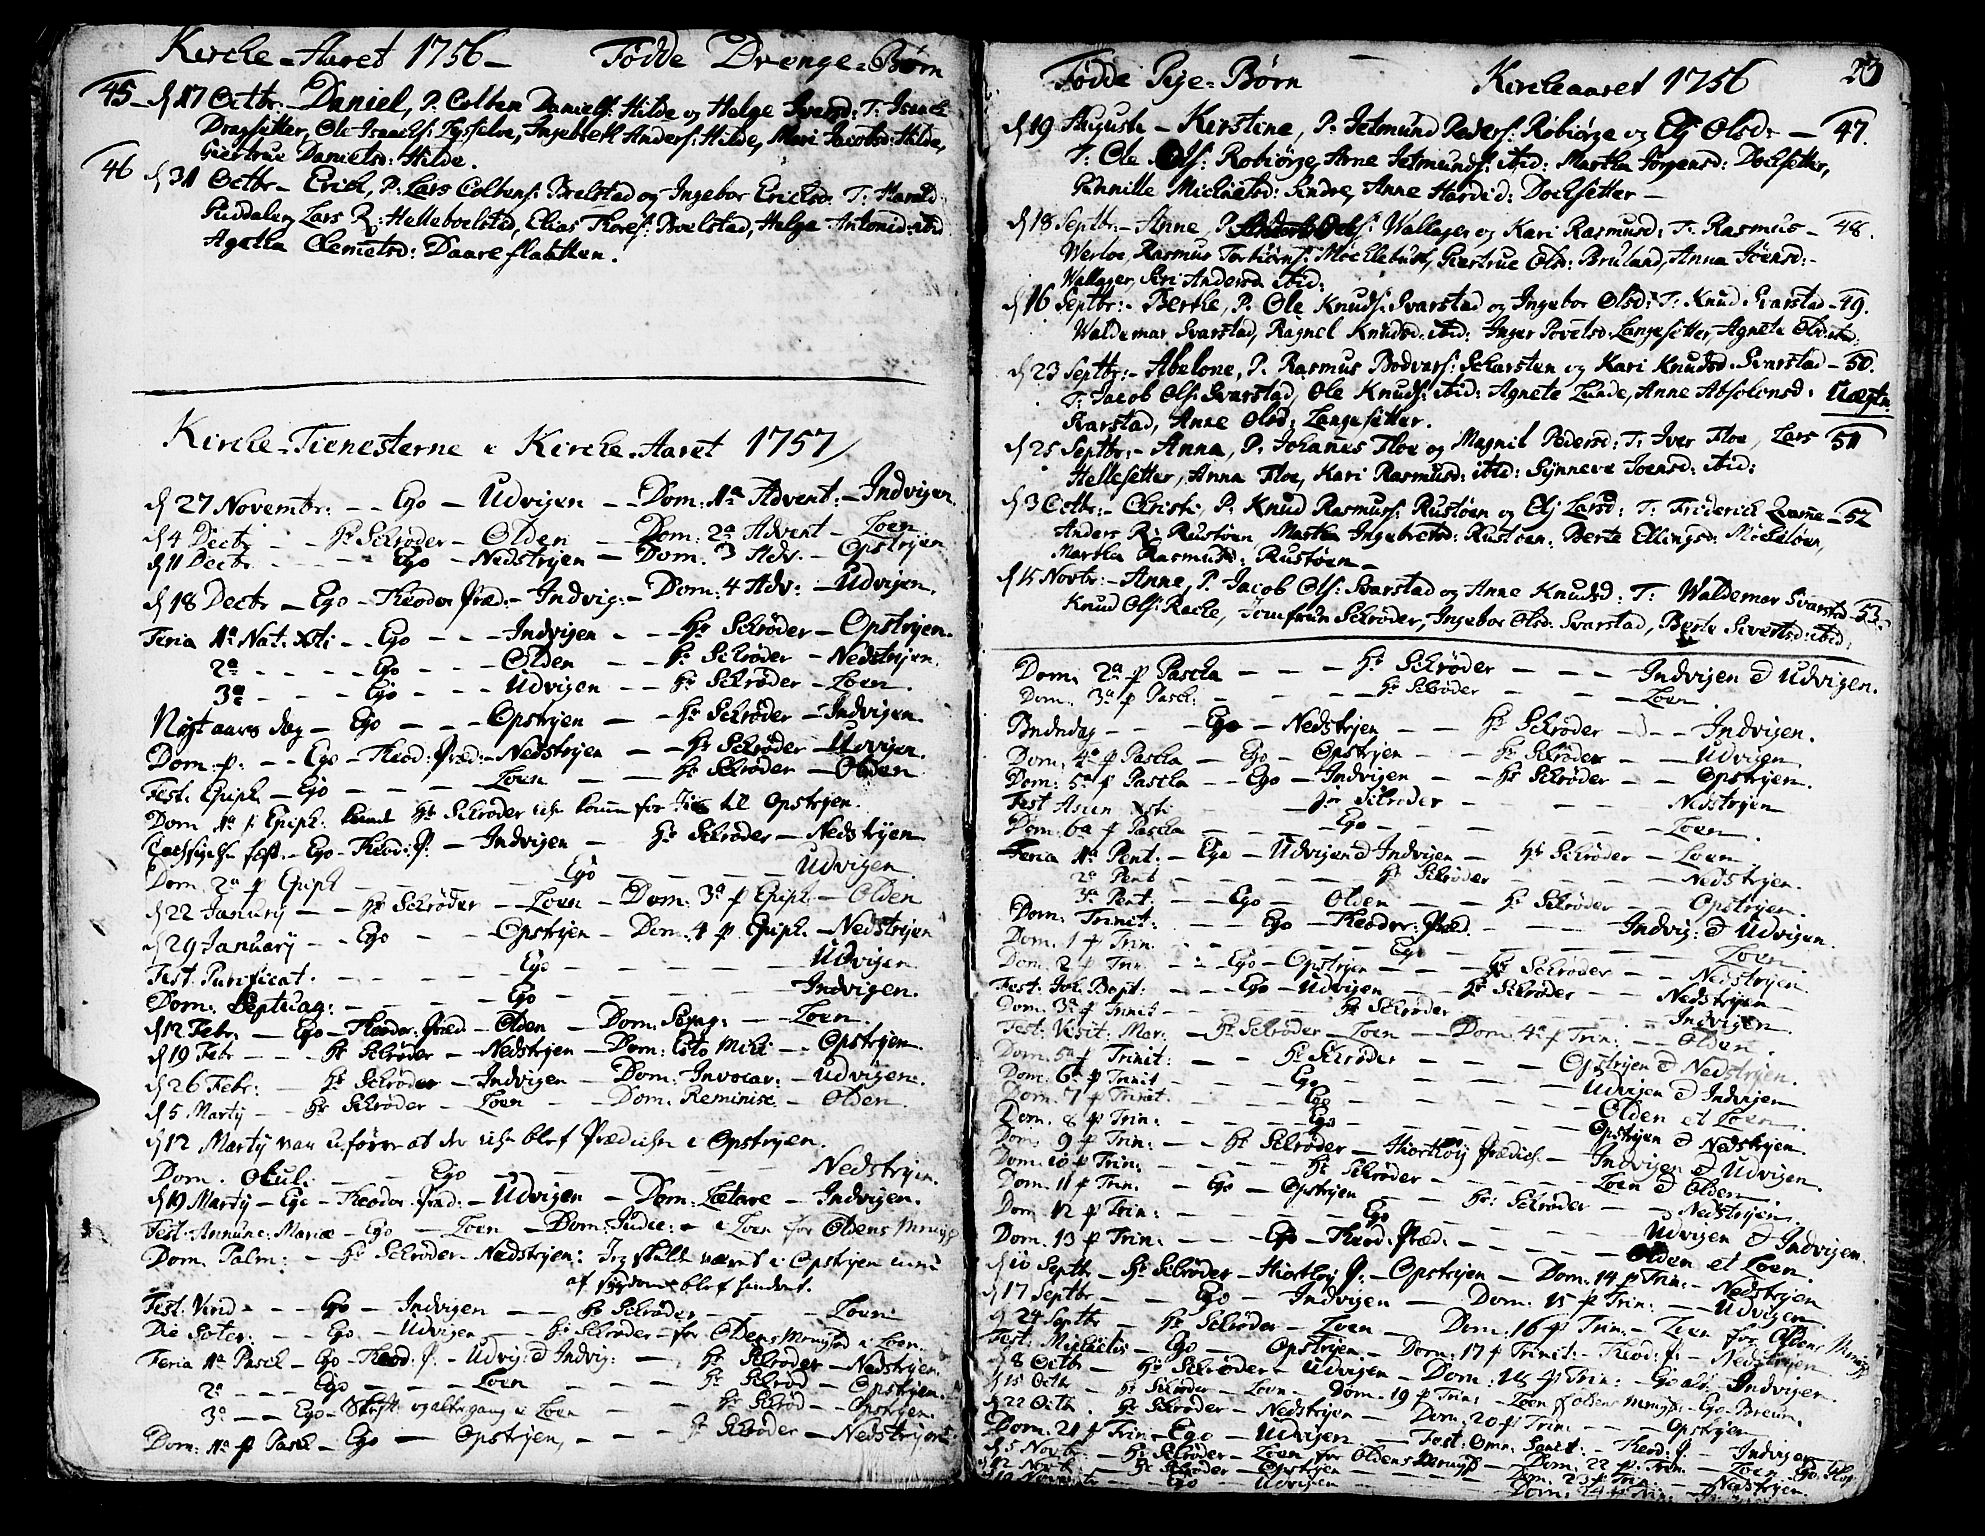 Kirche-Aaret 1756 - Fødde Drenge-Børn
45 - d 17 Octbr. - Daniel, P. Colben Daniels: Hilde og Helge Iversd: T: Isaach
Dragsetter, Ole Isaachs: Ingebrett Anders: Hilde, Mari Jacobsd: Hilde,
Giertrue Danielsd: Hilde.
46 d 31 Octbr - Erich, P: Lars Colbens: Boelstad og Ingebor Erichsd. T: Harald
Lars R: Helleboelstad, Elias Thores: Boelstad, Helge Antonid: ibid
Agatha Clemetsd: Daareflaatten.
Kirche-Tienesterne i Kirche-Aaret 1757
d 27 Novembr: - - Ego - Udvigen - Dom: 1a Advent: - Indvigen.
d 4 Decbr - - Hr Schrøder - Olden - Dom: 2a Advent - Loen
d 11 Decbr. - - - - Ego - Nedstryen - Dom: 3 Adv. - Opstryen
d 18 Decbr - Ego - Theodor Præd: - Indvig: - Dom: 4 Adv: - Udvigen.
Feria 1a Nat: Xsti - Ego - - - Indvigen - - Hr Schrøder - Opstryen.
2a - - - - - Ego - - - Olden - - Hr Schrøder - Nedstryen.
3a - - - - - Ego - - - Udvigen - - Hr Schrøder - Loen.
Nyt aars dag - Ego - - - Opstryen - - Hr Schrøder - Indvigen.
Dom: p. - - Ego - Theod: Præd: - Nedstryen - - Hr Schrøder - Udvigen.
Fest: Epiph - Ego - - - - Loen - - Hr Schrøder - Olden
Dom 1a p Epiph: kunde Hr Schrøder iche kom for Iis til Opstryen.
fæst. - Ego - Theod: P. - Indvigen - Hr Schrøder - Nedstryen
Dom. 2a p Epiph - - - - - Ego - - - - - Udvigen.
d 22 January - - Hr Schrøder - Loen - Dom: 3a p Epiph - Olden
d 29 January - - Ego - - Opstryen - Dom. 4 p Epiph. - Nedstryen
Fest Purificat. - - - - - Ego - - - - - Udvigen
Dom: Septuag: - - - - Ego - - - - - Indvigen.
d 12 Febr, - Ego - Theodor: Præd - Olden - Dom: Sexag: - Loen.
d 19 Febr - - - Hr Schrøder - Nedstryen - Dom: Esto Mihi - Opstryen.
d 26 Febr: - Hr Schrøder - Indvigen - Dom: Invocav: - Udvigen.
d 5 Marty - - Hr Schrøder - Loen - - Dom: Reminisc - Olden
d 12 Marty var uføre at der iche blef Prædichen i Opstryen.
Dom. Okuli - - - Ego - - - - - - Nedstryen.
d 19 Marty - Ego - Theodor: Præd: - Udvigen - Dom: Lætare - Indvigen.
Fest: Annunc: Mariæ - Ego - Loen - Dom: Judic: - i Loen for Oldens Menigh
Dom: Palm: - Hr Schrøder - Nedstryen: Jeg skulde været i Opstryen
af blef hindret.
Fest: Virid - - - Ego - Indvigen - - Hr Schrøder - - - Loen
Die Soter: - - Ego - Udvigen - - Hr Schrøder - for Oldens Menighed i Loen.
Feria 1a Pasch - Ego - Theod: P. - Udvig: & Indvig: - Hr Schrøder - Nedstryen.
2a - - - Ego - - - Loen - - - Hr Schrød - Opstryen.
3a - - Ego - Skrift og altergang i Loen - - Hr Schrød - Opstryen.
Dom: 1a p Pasch - Ego - Opstryen, - - - Hr Schrøder - Nedstryen.
Fødde Pige-Børn Kircheaaret 1756 23
d 19 Augusti - Kirstine, P: Jetmund Peders: Robiørge og Elj Olsd: - 47.
T: Ole Ols: Robiørge, Arne Jetmunds: ibid: Martha Jørgensd: Dochsetter,
Gunnille Michielsd: Indre, Anne Harvid: Dochsetter -
d 18 Septbr: - Anne, P. Ols: Wallager og Kari Rasmusd: T: Rasmus - 48.
Werloe, Rasmus Torbiørns: Møclebust, Giertrue Olsd: Bruland, Anna Joensd: -
Wallager, Siri Andersd: ibid:
d 16 Septbr: - Berthe, P. Ole Knuds: Svarstad og Ingebor Olsd: T: Knud Svarstad - 49.
Waldemar Svarstad, Ragnel Knudsd: ibid: Inger Povelsd: Langesetter, Agnete Olsd: ibid:
d 23 Septbr: - Abelone, P. Rasmus Bodvers: Scharsten og Kari Knudsd: Svarstad - 50.
T: Jacob Ols: Svarstad, Ole Knuds: ibid: Agnete Lunde, Anne Absolonsd: Uægte
Svarstad, Anne Olsd: Langesetter.
d 25 Septbr: - Anna, P. Johannes Floe og Magnil Pedersd: T: Iver Floe, Lars 51
Hellesetter, Anna Floe, Kari Rasmusd: ibid: Synneve Joensd: ibid:
d 3 Octbr: - Christi P. Knud Rasmus: Rustøen og Elj Larsd: T: Friderich Qvame - 52
Anders R: Rustøen Martha Ingebretsd: Rustøen, Berte Ellingsd: Mochleløen,
Martha Rasmusd: Rustøen -
d 15 Novbr: - Anne, P. Jacob Ols: Svarstad og Anne Knudsd: T: Waldemar Svarstad - 53.
Knud Ols: Rache, Jomfrun Schrøder, Ingebor Olsd: Svarstad, Berte Sivertsd: ibid:
Dom. 2a p Pascha - - Hr Schrøder - - - Indvigen & Udvigen.
Dom. 3a p Pasch: - - - Hr Schrøder - - - Loen.
Bededag - - - Ego - Nedstryen - - Hr Schrøder - - - Indvigen.
Dom. 4a p Pascha - Ego - Opstryen - - Hr Schrøder - - Udvigen
Dom: 5a p Pascha - - Ego - Indvigen - - Hr Schrøder - - Opstryen.
Fest Ascen Xsti - - - Hr Schrøder - - - Nedstryen
Dom: 6a p Pascha - - - Ego - - - - Loen.
Feria 1a Pent: - Ego - Udvigen & Indvigen - Hr Schrøder - Loen.
2a Pent - - - - - Hr Schrøder - - - Nedstryen.
3a Pent. - - Ego - Olden - - Hr Schrøder - - Opstryen.
Dom: Trinit: - - - Ego - Theodor: Præd. - - - Indvig: & Udvigen.
Dom. 1 p Trin - - - - - Ego - - - - Loen.
Dom. 2 p Trin - - - Ego - Opstryen - - - Hr Schrøder - - Nedstryen.
Fest: Joh: Bapt: - - - Ego - Udvigen - - Hr Schrøder - - Nedstryen
Dom: 3a p Trinit - - - - - Hr Schrøder - - - Indvigen
Fest: Visit: Mar. - Hr Schrøder - Loen - Dom. 4a p Trin: - - Olden.
Dom. 5a p Trinit: - - - Hr Schrøder - - - Opstryen & Nedstryen.
Dom. 6a p Trinit - - - - Ego - - - - Udvigen & Indvigen
Dom: 7 p Trinit. - - - - Ego - - - - Olden et Loen.
Dom. 8 p Trin: - - - - Ego - - - - Opstryen & Nedstryen.
Dom. 9 p Trin: - - - Hr Schrøder - Hiorthøy Prædich - Indvigen & Udvigen.
Dom. 10 p Trin: - - - - Hr Schrøder - - - - Loen & Olden
Dom. 11 p Trin. - - Ego - Opstryen - - - Hr: Schrøder - - Nedstryen.
Dom. 12 p Trin: - - - - - Ego - - - - Udvigen & Indvigen.
Dom. 13 p Trin: - - - Ego - Theod: Præd: - - - Olden et Loen.
d 10 Septbr - Hr Schrøder - Hiorthøy P: - Opstryen - Dom. 14 p Trin: - Nedstryen
d 17 Septbr - - - Ego - Indvigen - Dom. 15 p Trin: - - Udvigen
d 24 Septbr - Hr Schrøder - Loen - Dom. 16 p Trin. - Loen for Oldens Menigh
Fest: Michaelis - Ego - Opstryen - Dom: 17 p Trinit: - Theod: P: - Nedstryen
d 8 Octbr - Hr Schrøder - Udvigen - Dom: 18 p Trin: - Indvigen
d 15 Octb. - Hr Schrøder - Loen - Dom. 19 p Trin: Loen f Oldens Menigh - Ego - Breum.
d 22 Octb. - Hr Schrøder - Nedstryen - Dom: 20 p Trin: - Opstryen
Dom: 21 p Trin - Ego - Udvigen - Fest: Omn: Sanct: - Theod: P: - Indvigen
d 5 Novbr - Hr Schrøder - Loen for Oldens Menigh - Dom: 22 p: Trin. - Loen.
d 12 Novb - Hr Schrøder - Opstryen - - Dom: 23 p Trin: - Nedstryen.
d 19 Novemb - Ego - Udvigen - - - Dom. 24 p Trin: